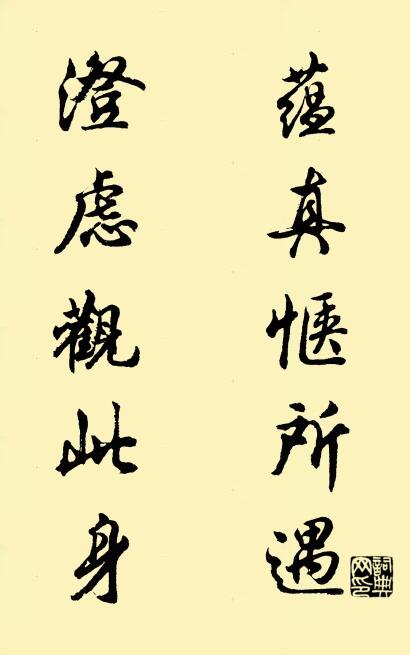 蘊真愜所遇
澄慮觀此身
詞典网印